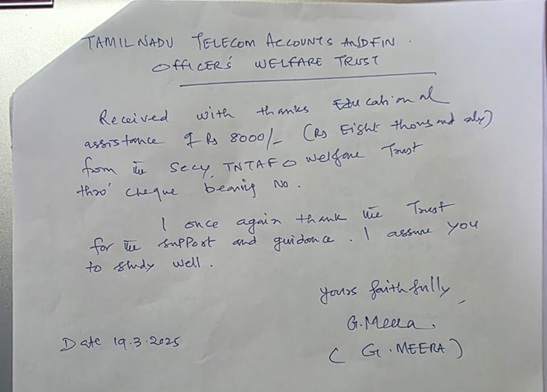 TAMILNADU TELECOM ACCOUNTS AND FIN.
OFFICER'S WELFARE TRUST
Received with thanks Educational
assistance of Rs 8000/- (Rs Eight thousand only)
from the Secy, TNTAFO Welfare Trust
thro' cheque bearing No.
I once again thank the Trust
for the support and guidance. I assure you
to study well.
yours faithfully,
G. Meera.
( G. MEERA )
Date 19.3.2025